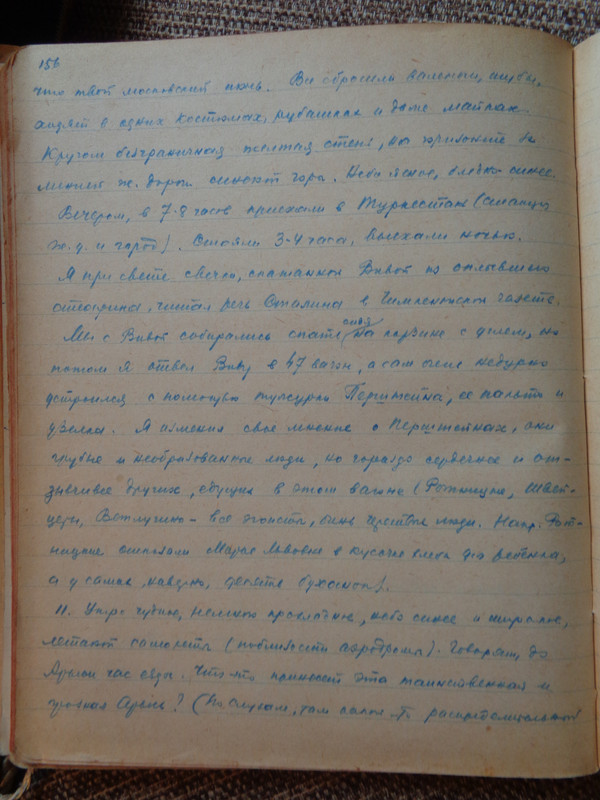 156
что твой московский июнь. Все сбросили валенки, шубы,
ходят в одних костюмах, рубашках и даже майках.
Кругом безграничная желтая степь, на горизонте за
линией ж. дороги синеют горы. Небо ясное, бледно-синее.
Вечером, в 7-8 часов приехали в Туркестан (станция
ж. д. и город). Стояли 3-4 часа, выехали ночью.
Я при свете свечи, скатанной Вивой из оплывшего
стеарина, читал речь Сталина в Чимкентской газете.
Мы с Вивой собирались спать сидя на корзине с бельем, но
потом я отвел Виву в 47 вагон, а сам очень недурно
устроился с помощью тужурки Перштейна, ее пальто и
узелка. Я изменил свое мнение о Перштейнах, они
грубые и необразованные люди, но гораздо сердечнее и от-
зывчивее других, едущих в этом вагоне (Ротницкие, Швет-
церы, Ватлучино - все эгоисты, очень черствые люди. Напр. Рот-
ницкие отказали Марье Львовне в кусочке хлеба для ребенка,
а у самих, наверно, десять буханок).
11. Утро чудное, немного прохладное, небо синее и широкое,
летают самолеты (поблизости аэродром). Говорят, до
Арыси час езды. Что-то принесет эта таинственная и
грозная Арысь? (По слухам, там какой-то распределительный